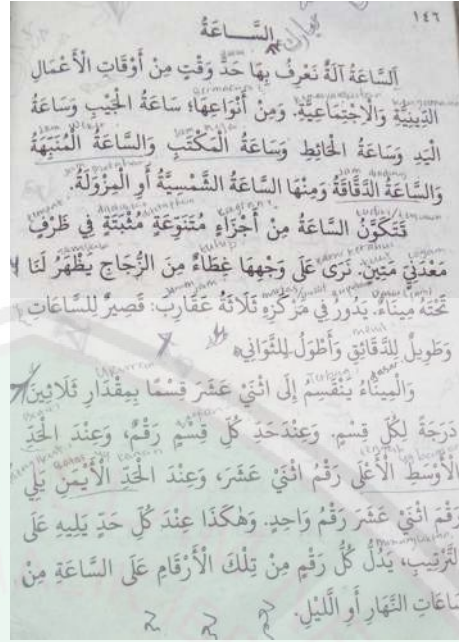 ١٤٦
السَّـاعَةُ
اَلسَّاعَةُ آلَةٌ نَعْرِفُ بِهَا حَدَّ وَقْتٍ مِنْ أَوْقَاتِ الْأَعْمَالِ
الدِّينِيَّةِ وَالْاِجْتِمَاعِيَّةِ. وَمِنْ أَنْوَاعِهَا؛ سَاعَةُ الْجَيْبِ وَسَاعَةُ
الْيَدِ وَسَاعَةُ الْحَائِطِ وَسَاعَةُ الْمَكْتَبِ وَالسَّاعَةُ الْمُنَبِّهَةُ
وَالسَّاعَةُ الدَّقَّاقَةُ وَمِنْهَا السَّاعَةُ الشَّمْسِيَّةُ أَوِ الْمِزْوَلَةُ.
تَتَكَوَّنُ السَّاعَةُ مِنْ أَجْزَاءٍ مُتَنَوِّعَةٍ مُثْبَتَةٍ فِي ظَرْفٍ
مَعْدَنِيٍّ مَتِينٍ. نَرَى عَلَى وَجْهِهَا غِطَاءً مِنَ الزُّجَاجِ يَظْهَرُ لَنَا
تَحْتَهُ مِينَاءٌ. يَدُورُ فِي مَرْكَزِهِ ثَلَاثَةُ عَقَارِبَ: قَصِيرٌ لِلسَّاعَاتِ
وَطَوِيلٌ لِلدَّقَائِقِ وَأَطْوَلُ لِلثَّوَانِي.
وَالْمِينَاءُ يَنْقَسِمُ إِلَى اثْنَيْ عَشَرَ قِسْمًا بِمِقْدَارِ ثَلَاثِينَ
دَرَجَةً لِكُلِّ قِسْمٍ. وَعِنْدَ حَدِّ كُلِّ قِسْمٍ رَقْمٌ، وَعِنْدَ الْحَدِّ
الْأَوْسَطِ الْأَعْلَى رَقْمُ اثْنَيْ عَشَرَ، وَعِنْدَ الْحَدِّ الْأَيْمَنِ يَلِي
رَقْمَ اثْنَيْ عَشَرَ رَقْمُ وَاحِدٍ. وَهٰكَذَا عِنْدَ كُلِّ حَدٍّ يَلِيهِ عَلَى
التَّرْتِيبِ، يَدُلُّ كُلُّ رَقْمٍ مِنْ تِلْكَ الْأَرْقَامِ عَلَى السَّاعَةِ مِنْ
سَاعَاتِ النَّهَارِ أَوِ اللَّيْلِ.